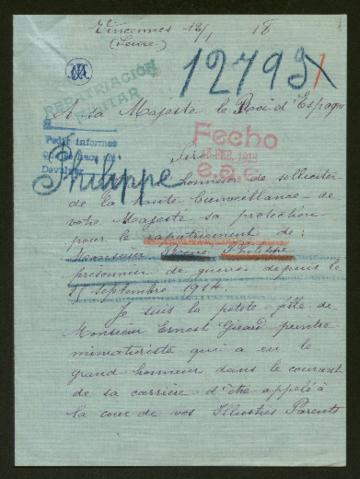 Vincennes 12/1 18
(Seine)
12793/1
REPATRIACIÓN
MILITAR
A sa Majesté le Roi d'Espagne
Pedir informes
Fecho
FEB. 1918
Philippe
Sire
honneur de solliciter
de la haute bienveillance de
votre Majesté sa protection
pour le rapatriement de :
Monsieur Philippe
prisonnier de guerre depuis le
septembre 1914.
Je suis la petite fille de
Monsieur Ernest Girard peintre
miniaturiste qui a eu le
grand honneur dans le courant
de sa carrière d'être appelé à
la cour de vos Illustres Parents